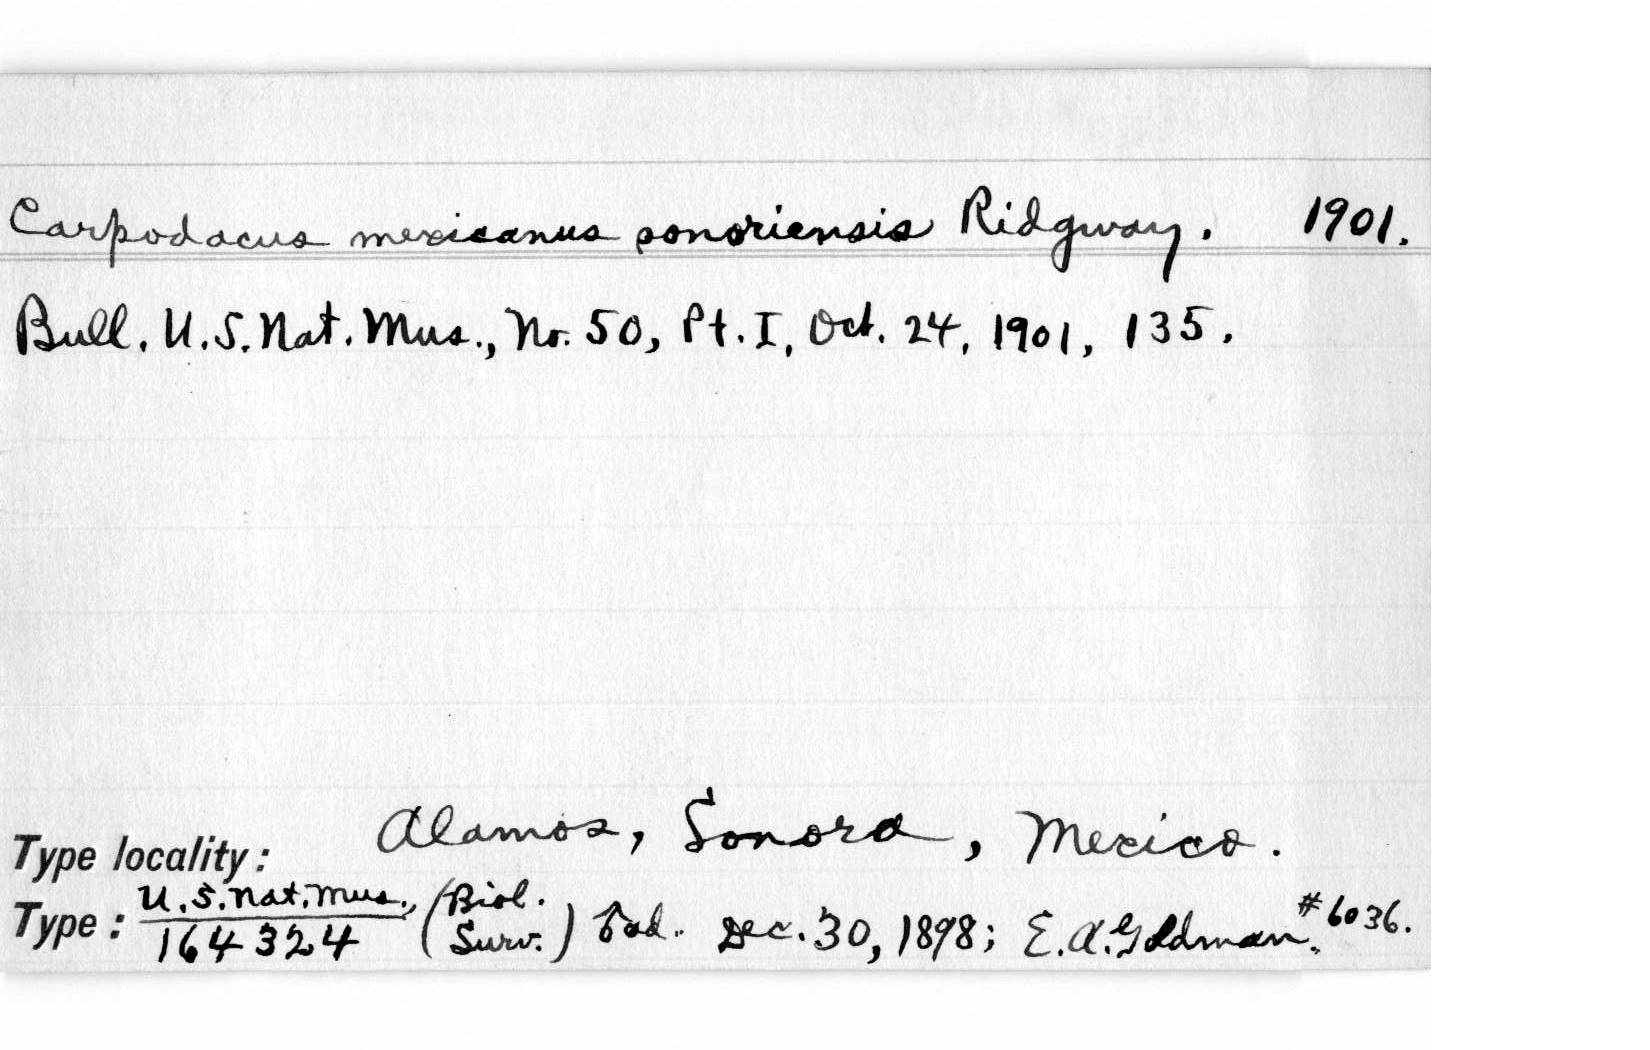 Carpodacus mexicanus sonoriensis Ridgway. 1901.
Bull. U.S. Nat. Mus., No. 50, Pt. I, Oct. 24, 1901, 135.
Type locality: Alamos, Sonora, Mexico.
Type: U.S. Nat. Mus., 164324 (Biol. Surv.) ad. Dec. 30, 1898; E. A. Goldman. #6036.